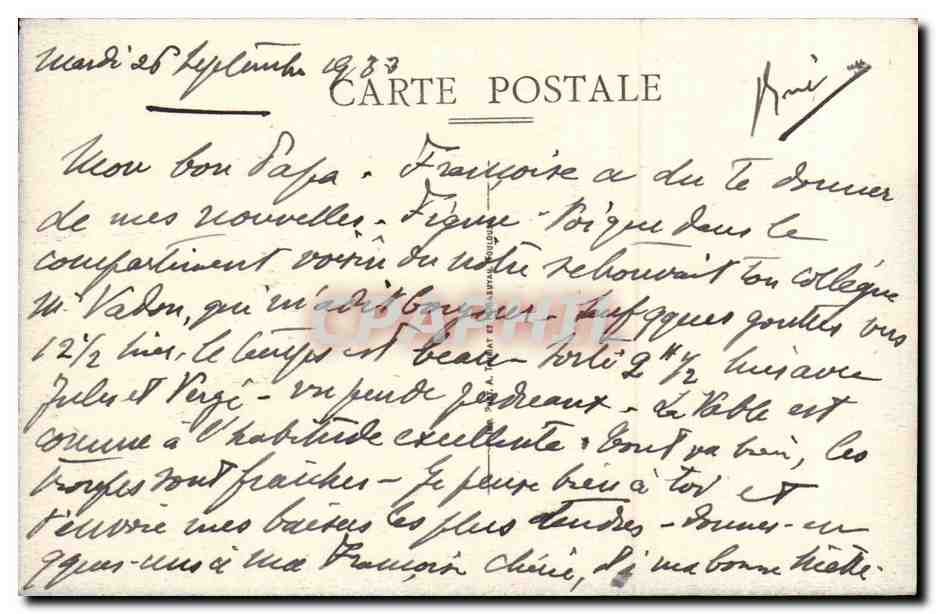 Mardi 26 Septembre 1933
CARTE POSTALE
Mon bon Papa - Françoise a du te donner
de mes nouvelles - Figure-toi que dans le
compartiment voisin du nôtre se trouvait ton collègue
Mr Vadon, qui m'a dit bonjour - Sauf qques gouttes vers
12 1/2 hier, le temps est beau - Sorti 2 H 1/2 hier avec
Jules et Vergé - vu peu de perdreaux - La table est
comme à l'habitude excellente. Tout va bien, les
troupes sont fraîches - Je pense bien à toi et
t'envoie mes baisers les plus tendres - donnes-en
qques-uns à ma Françoise chérie, à ma bonne
CPAPHIL